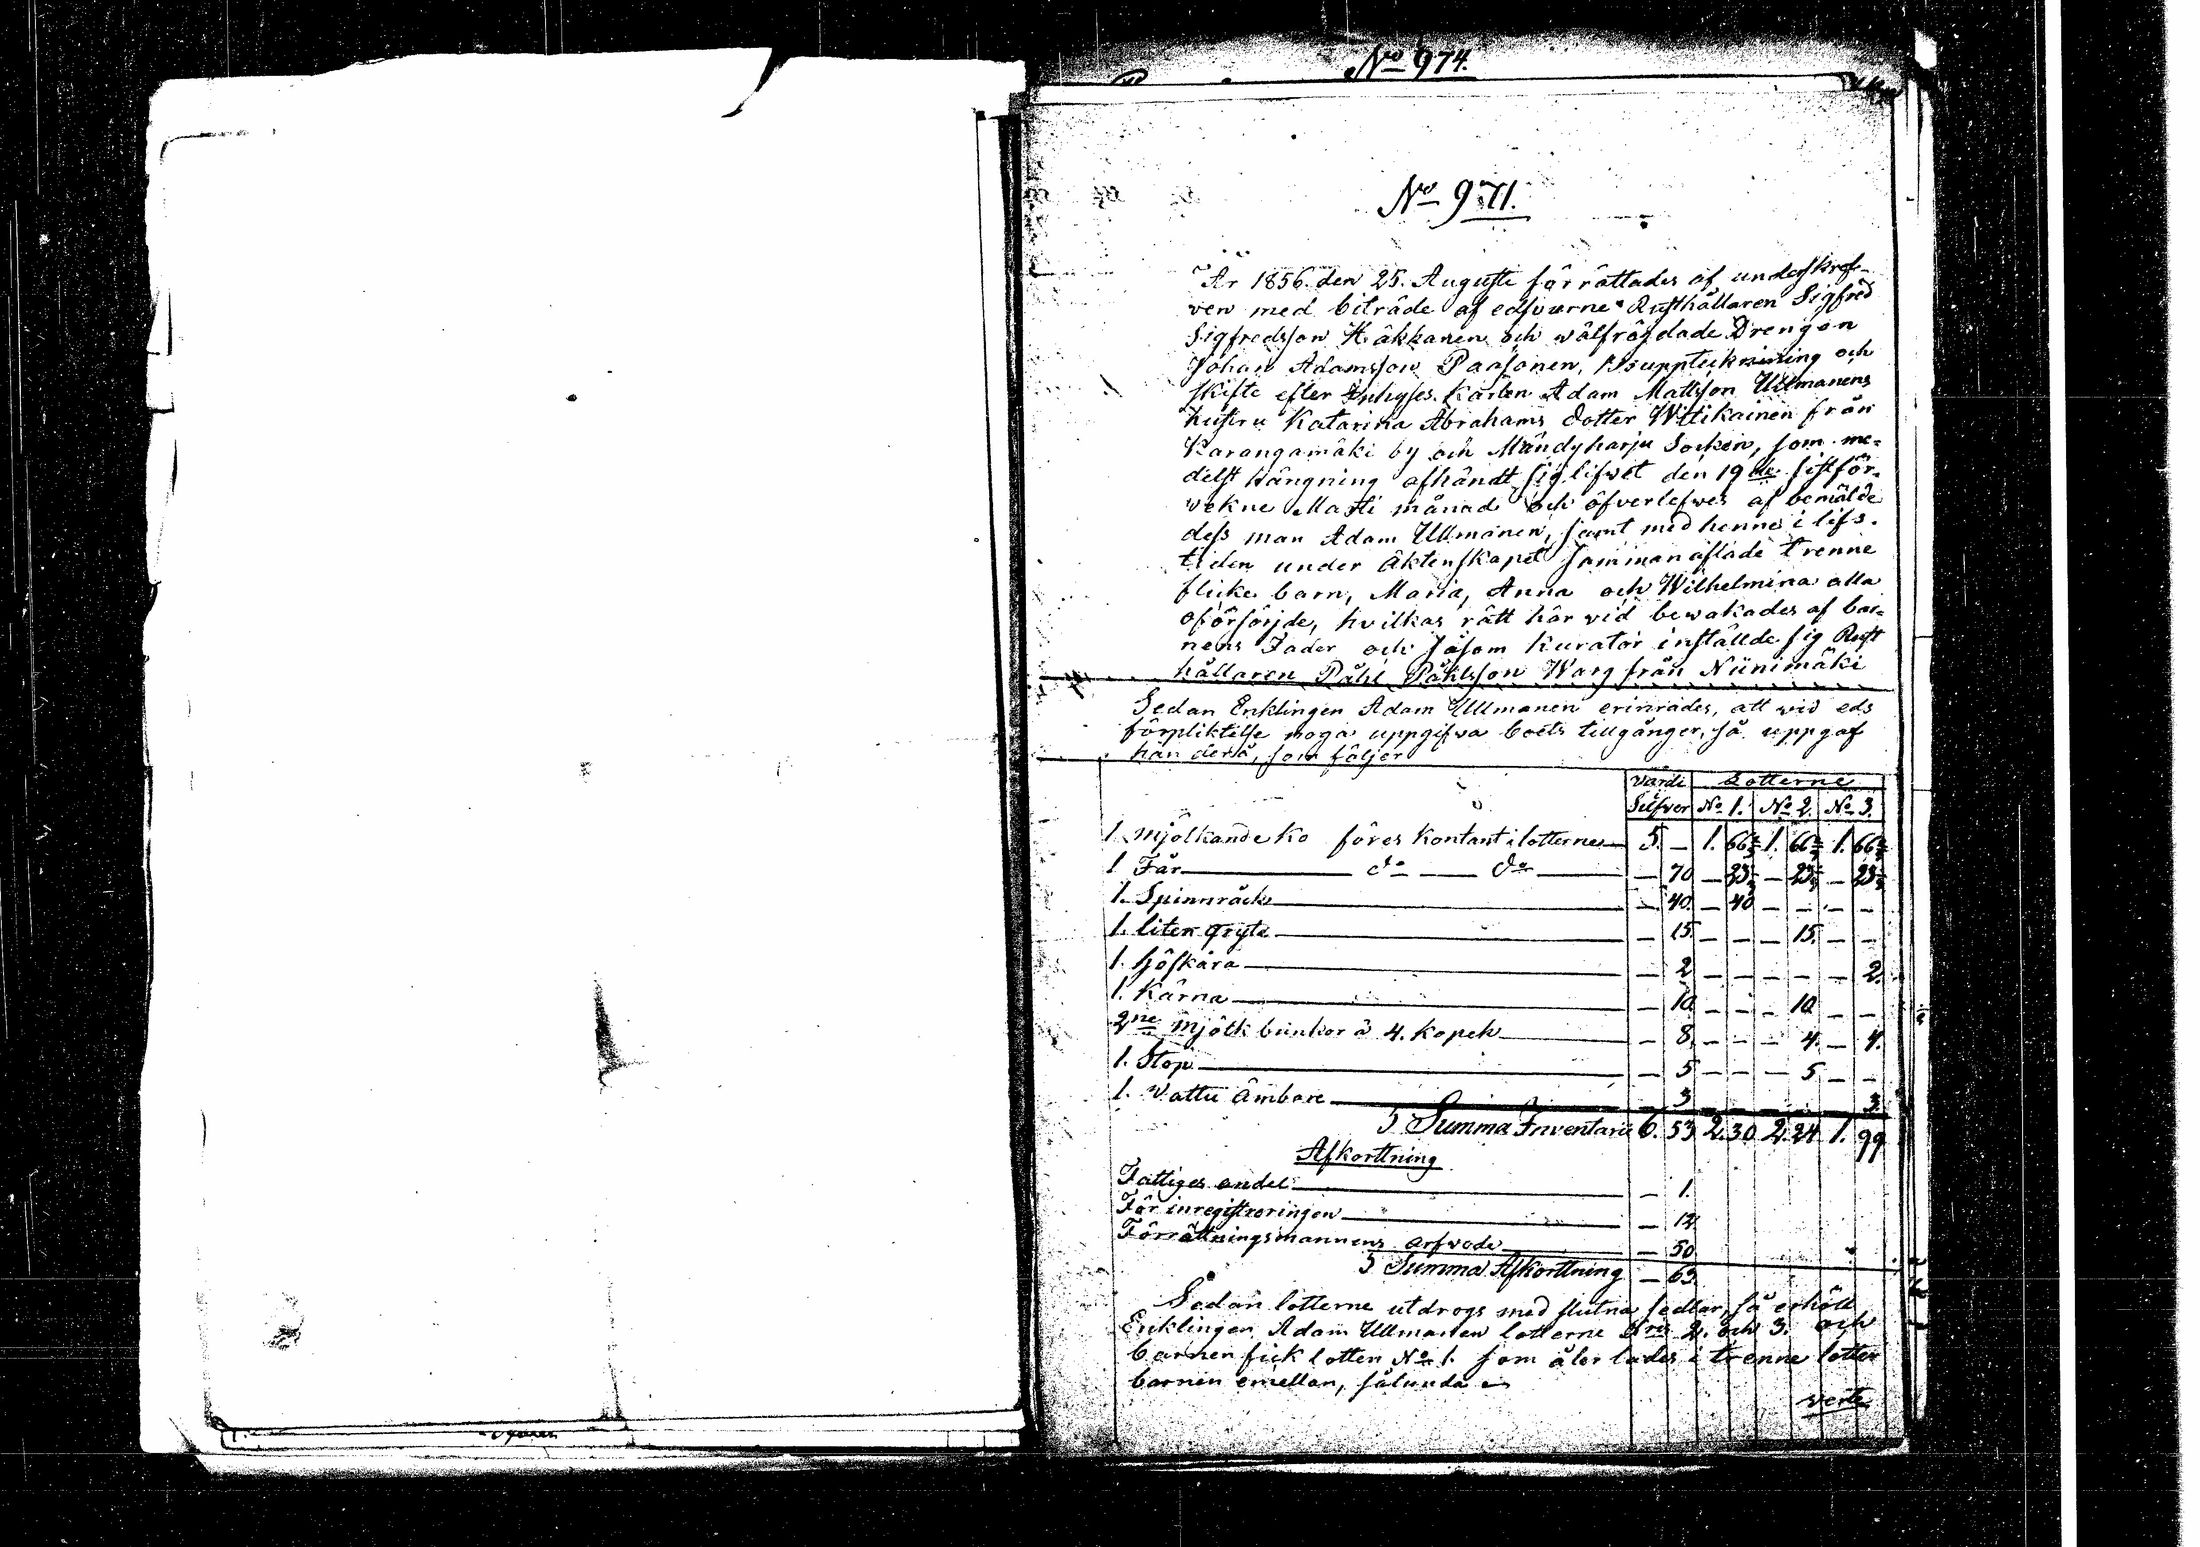 No 974.
No 971.
År 1856. den 25. Augusti förrättades af underskref-
ven med biträde af edsvurne Rusthållaren Sigfred
Sigfredsson Häkkänen och wälfräjdade Drengen
Johan Adamsson Paasonen, Bouppteckning och
skifte efter Inhyses Karlen Adam Mattsson Ullmanens
hustru Katarina Abrahams dotter Witikainen från
Karangamäki by och Mändyharju Socken, som me-
delst hängning afhändt sig lifwet den 19de sistför-
vekne Martii månad och öfverlefwes af bemälde
dess man Adam Ullmanen, samt med henne i lifs-
tiden under Äktenskapet sammanaflade trenne
flicke barn, Maria, Anna och Wilhelmina alla
oförsörjde, hvilkas rätt här vid bewakades af bar-
nens Fader och såsom Kurator inställde sig Rust
hållaren Påhl Påhlsson Warg från Niinimäki
Sedan Enklingen Adam Ullmanen erinrades, att wid eds
förpliktelse noga uppgifwa boets tillgånger, så uppgaf
han derå, som följer
Värdi Lotterne
Silfver No 1. No 2. No 3.
1. Mjölkande Ko föres Kontant i lotterne 5. — 1. 66⅔ 1. 66⅔ 1. 66⅔
1 Får do do — 70 — 23⅓ — 23⅓ — 23⅓
1. Spinnråck — 40. — 40 — — — —
1. liten gryta — 15. — — — 15. — —
1. Höskära — 2 — — — — — 2.
1. Kärna — 10 — — — 10 — —
2ne Mjölk bunkor à 4. Kopek — 8. — — — 4. — 4.
1. Stop — 5 — — — 5 — —
1. Vattu Ämbare — 3 — — — — — 3.
Summa Inventarii 6. 53 2. 30 2. 24 1. 99
Afkorttning
Fattiges andel — 1.
För inregistreringen — 12.
Förrättningsmannens arfwode — 50
Summa Afkorttning — 63.
Sedan lotterne utdrogs med slutna sedlar, så erhöll
Enklingen Adam Ullmanen lotterne Nris 2. och 3. och
barnen fick lotten No 1. som åter lades i trenne lotter
barnen emellan, sålunda
verte